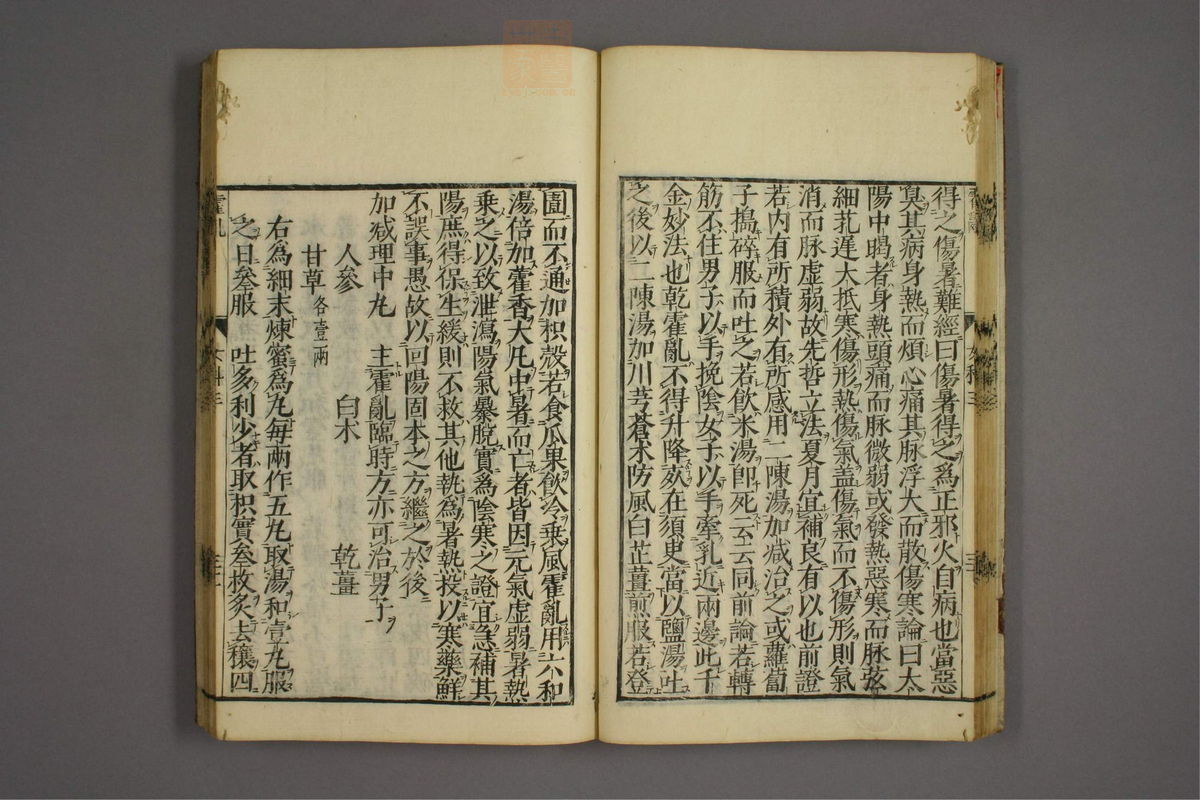 得之傷暑難經曰傷暑得之爲正邪火自病也當惡
臭其病身熱而煩心痛其脉浮大而散傷寒論曰太
陽中暍者身熱頭痛而脉微弱或發熱惡寒而脉弦
細芤遲大抵寒傷形熱傷氣盖傷氣而不傷形則氣
消而脉虛弱故先哲立法夏月宜補良有以也前證
若内有所積外有所感用二陳湯加减治之或蘿蔔
子搗碎服而吐之若飲米湯卽死云云同前論若轉
筋不住男子以手挽陰女子以手牽乳近兩邊此千
金妙法也乾霍亂不得升降死在須臾當以鹽湯吐
之後以二陳湯加川芎蒼术防風白芷薑煎服若登
圊而不通加枳殼若食瓜果飲冷乗風霍亂用六和
湯倍加藿香大凡中暑而亡者皆因元氣虚弱暑熱
乗之以致泄瀉陽氣暴脫實爲陰寒之證宜急補其
陽庶得保生緩則不救其他執爲暑熱投以寒藥鮮
不誤事愚故以回陽固本之方繼之於後
加减理中丸 主霍亂臨時方亦可治男子
人參 白术 乾薑
甘草 各壹兩
右爲細末煉蜜爲丸毎兩作五丸取湯和壹丸服
之日叄服 吐多利少者取枳實叄枚炙去穰四